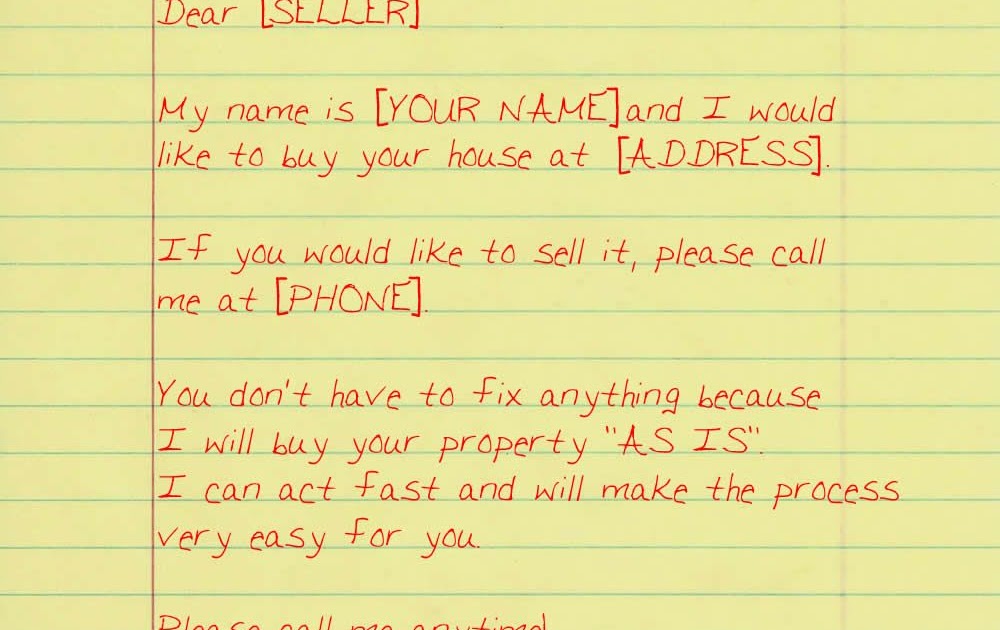 Dear [SELLER]
My name is [YOUR NAME] and I would
like to buy your house at [ADDRESS].
If you would like to sell it, please call
me at [PHONE].
You don't have to fix anything because
I will buy your property "AS IS".
I can act fast and will make the process
very easy for you.
Please call me anytime!